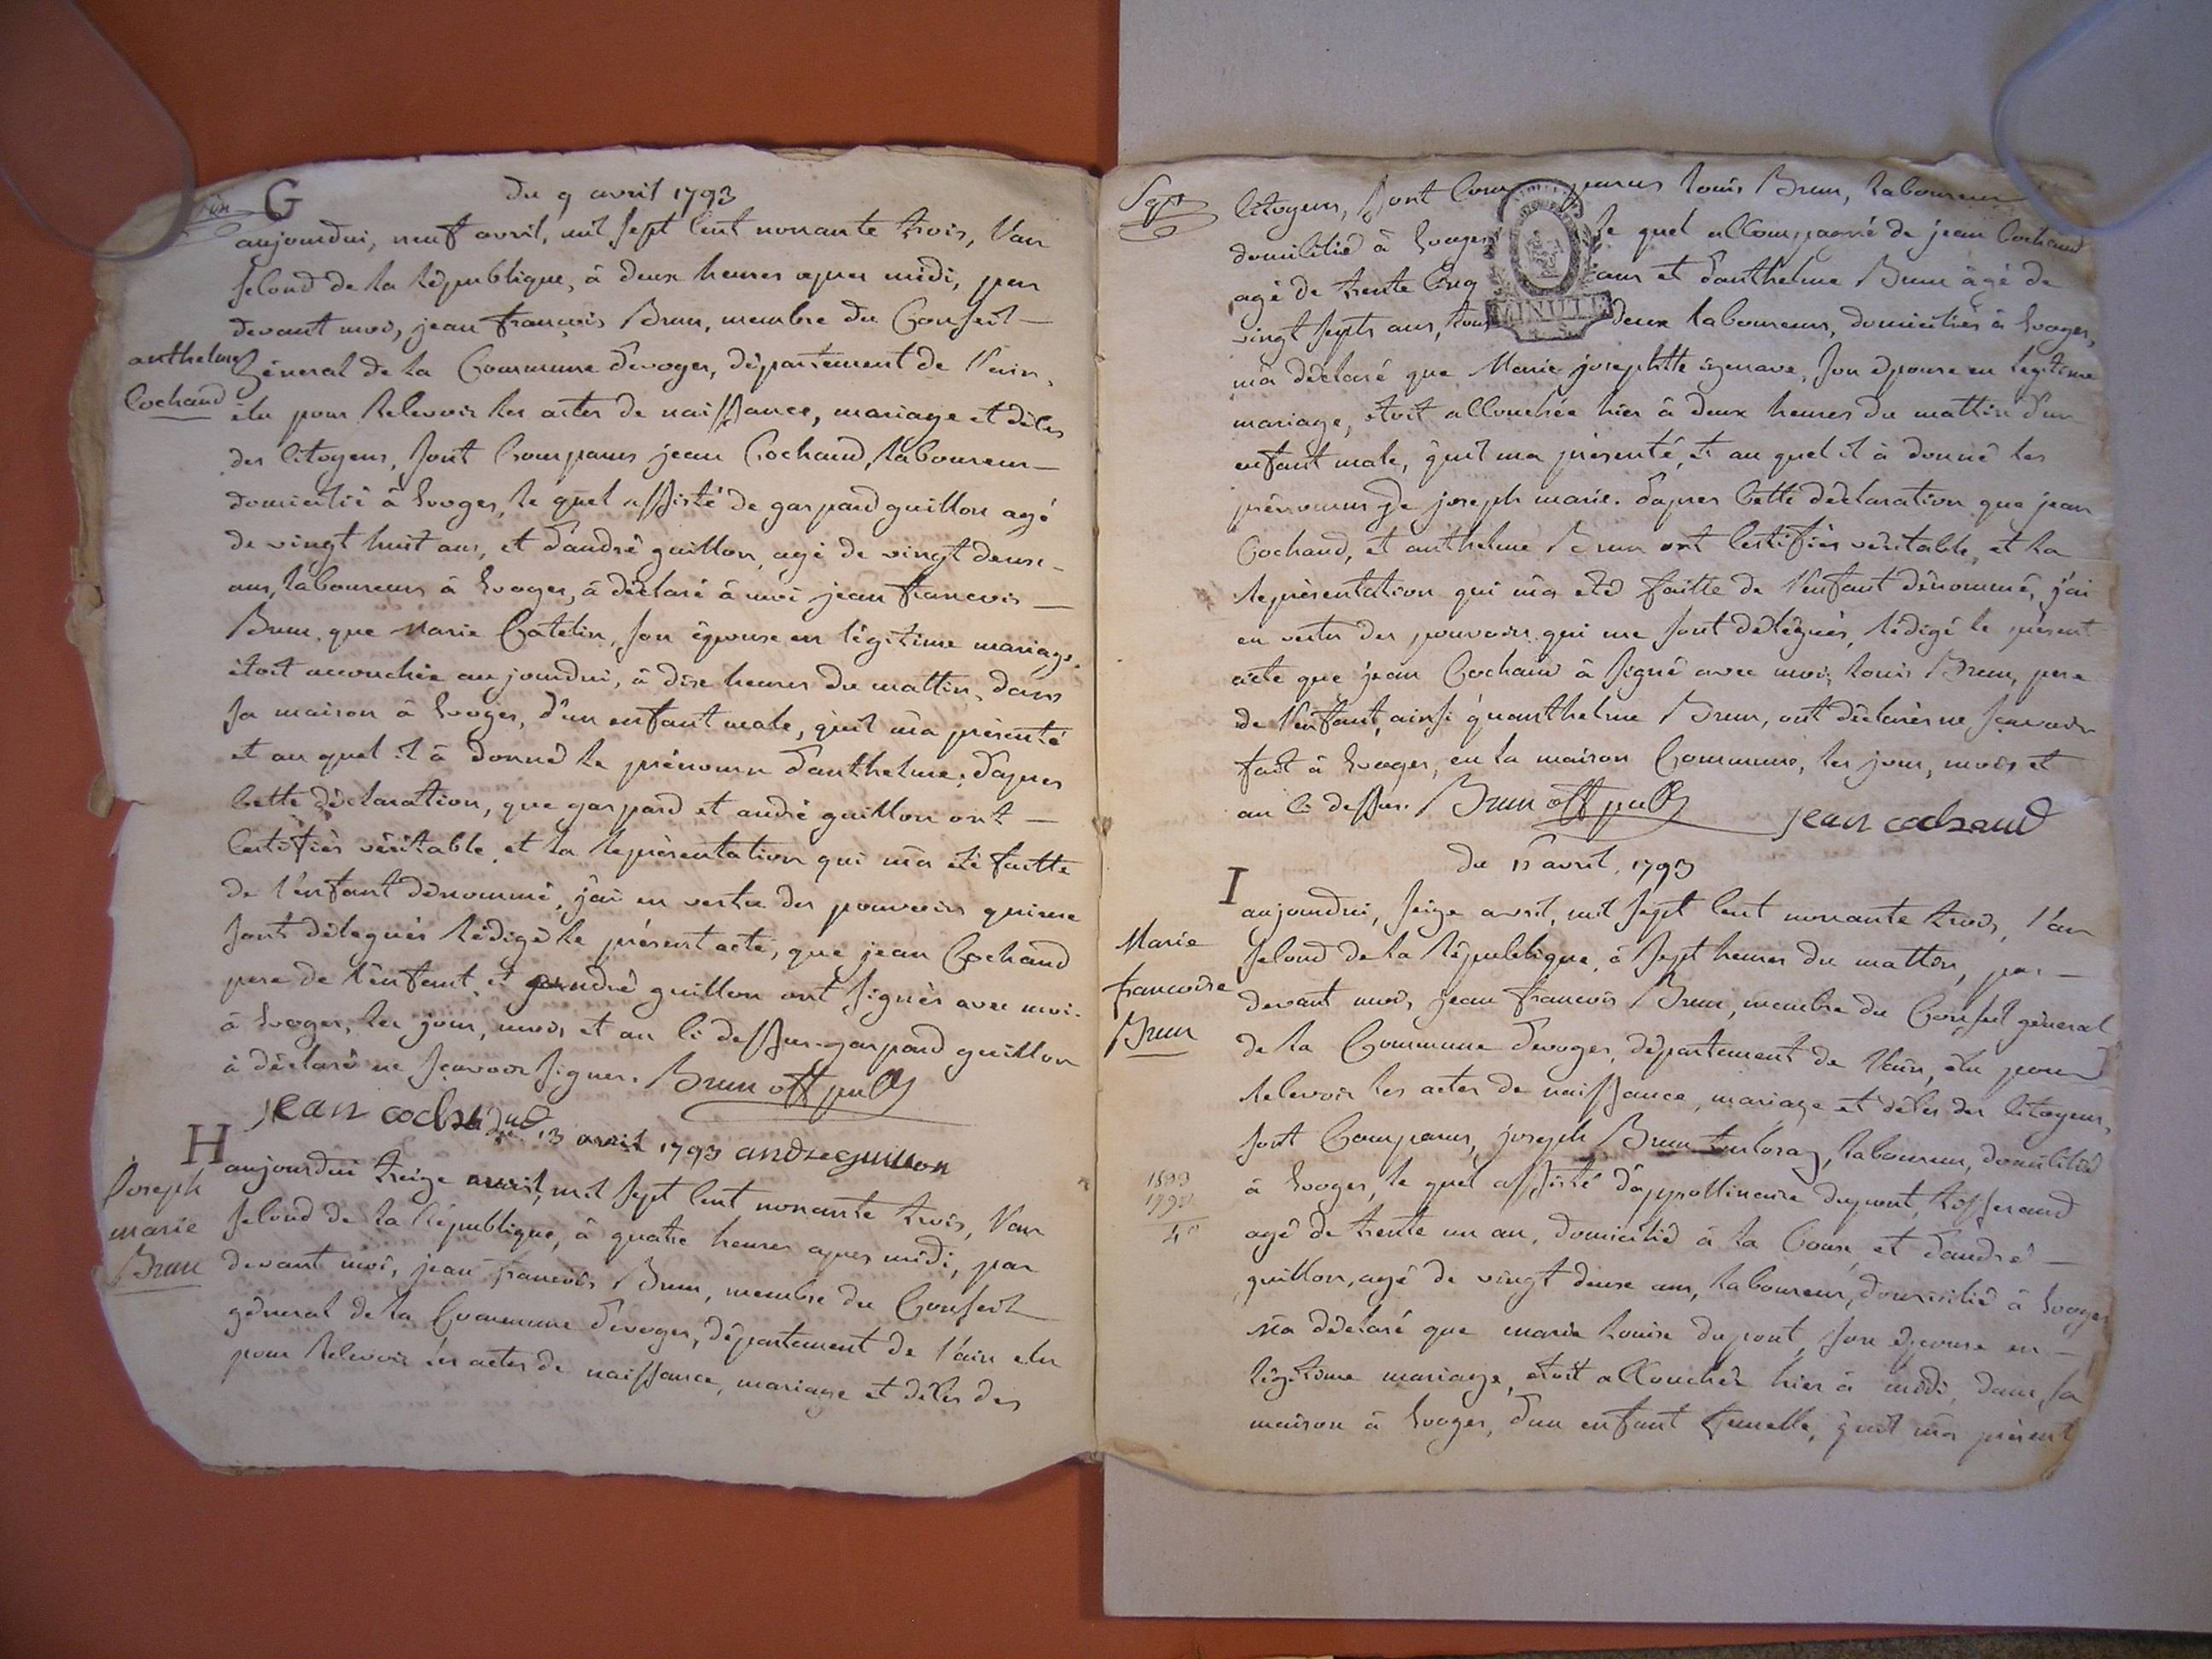 G
du 9 avril 1793
aujourdui, neuf avril, mil sept cent nonante trois, l'an
second de la république, à deux heures apres midi, par
devant moi, jean francois Brun, membre du Conseil
anthelme
Cochand
Géneral de la Commune d'evoges, département de l'ain,
élu pour recevoir les actes de naissance, mariage et décès
des citoyens, sont Comparus jean Cochand, laboureur
domicilié à Evoges, le quel assisté de gaspard guillon agé
de vingt huit ans, et d'andré guillon, agé de vingt deux
ans, laboureurs à Evoges, à déclaré à moi jean francois
Brun, que Marie Catelin, son épouse en légitime mariage,
étoit accouchée aujourdui, à dix heures du mattin, dans
sa maison à Evoges, d'un enfant male, qu'il m'a présenté
et au quel il à donné le prénom d'anthelme; d'apres
cette déclaration, que gaspard et andré guillon ont
certifiés véritable, et la représentation qui m'a été faitte
de l'enfant dénommé, j'ai en vertu des pouvoirs qui me
sont délegués rédigé le présent acte, que jean Cochand
pere de l'enfant, et andré guillon ont signés avec moi.
à Evoges, les jour, mois et an ci dessus. gaspard guillon
à déclaré ne sçavoir signer. Brun off publ
jean cochand
andre guillon
H
du 13 avril 1793
Joseph
marie
Brun
aujourdui treize avril, mil sept cent nonante trois, l'an
second de la République, à quatre heures apres midi, par
devant moi, jean francois Brun, membre du Conseil
géneral de la Commune d'evoges, département de l'ain elu
pour recevoir les actes de naissance, mariage et décès des
citoyens, sont Comparus louis Brun, laboureur
domicilié à Evoges le quel accompagné de jean Cochand
agé de trente cinq ans et d'anthelme Brun âgé de
vingt septs ans, tous deux laboureurs, domiciliés à Evoges,
MINUTE
m'a déclaré que Marie josephtte son épouse en legitime
mariage, étoit accouchée hier à deux heures du mattin d'un
enfant male, qu'il m'a présenté, et au quel il à donné les
prénoms de joseph marie. d'apres cette déclaration que jean
Cochand, et anthelme Brun ont certifiés véritable, et la
représentation qui m'a eté faitte de l'enfant dénommé, j'ai
en vertu des pouvoirs qui me sont délégués, rédigé le présent
acte que jean Cochand à signé avec moi; louis Brun, pere
de l'enfant, ainsi qu'anthelme Brun, ont déclarés ne sçavoir
fait à Evoges, en la maison Commune, les jour, mois et
an ci dessus. Brun off publ
jean cochand
I
avril 1793
Marie
francoise
Brun
aujourdui, seize avril, mil sept cent nonante trois, l'an
second de la République, à sept heures du mattin, par
devant moi, jean francois Brun, membre du Conseil géneral
de la Commune d'evoges, département de l'ain, élu pour
recevoir les actes de naissance, mariage et décès des citoyens,
sont Comparus, joseph Brun laboureur, domicilié
à Evoges, le quel assisté d'appollinaire dupont, tisserand
1793
agé de trente un an, domicilié à la Coux, et d'andré
guillon, agé de vingt deux ans, laboureur, domicilié à Evoges
m'a déclaré que marie louise dupont, son épouse en
légitime mariage, étoit accouchée hier à midi, dans sa
maison à Evoges, d'un enfant femelle, qu'il m'a présent